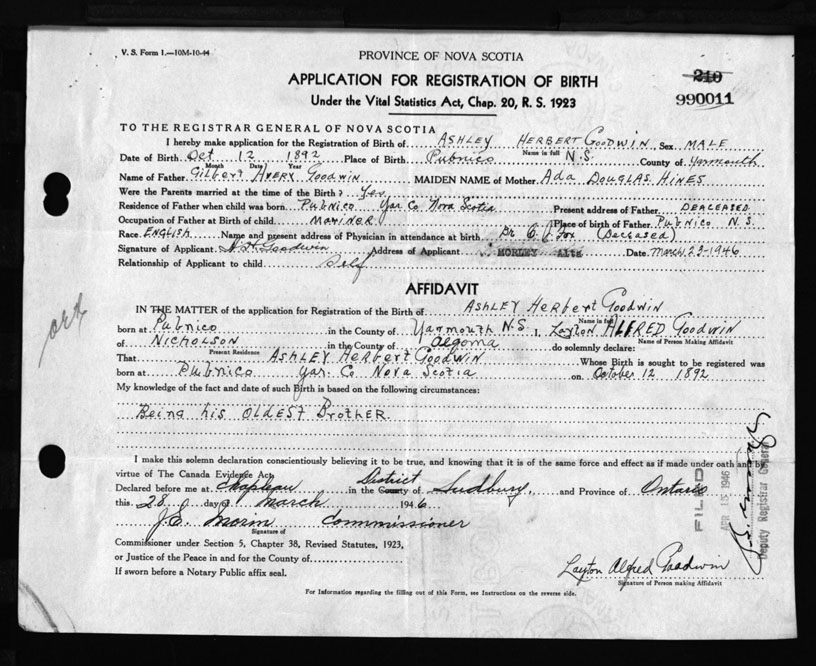 V. S. Form 1.—10M-10-44
PROVINCE OF NOVA SCOTIA
APPLICATION FOR REGISTRATION OF BIRTH
210
Under the Vital Statistics Act, Chap. 20, R. S. 1923
990011
TO THE REGISTRAR GENERAL OF NOVA SCOTIA
I hereby make application for the Registration of Birth of ASHLEY HERBERT GOODWIN Sex MALE
Name in full
Date of Birth Oct 12 1892 Place of Birth Pubnico N.S. County of Yarmouth
Month Date Year
Name of Father Gilbert AVERY Goodwin MAIDEN NAME of Mother Ada DOUGLAS HINES
Were the Parents married at the time of the Birth? Yes
Residence of Father when child was born Pubnico Yar. Co Nova Scotia Present address of Father DEACEASED
Occupation of Father at Birth of child MARINER Place of birth of Father Pubnico N.S.
Race ENGLISH Name and present address of Physician in attendance at birth Dr C. J. Fox (Deceased)
Signature of Applicant A.H. Goodwin Address of Applicant MORLEY Alta Date March 23-1946
Relationship of Applicant to child Self
AFFIDAVIT
IN THE MATTER of the application for Registration of the Birth of ASHLEY HERBERT GOODWIN
Name in full
born at Pubnico in the County of Yarmouth N.S. I, Layton ALFRED GOODWIN
Name of Person Making Affidavit
of NICHOLSON in the County of Algoma do solemnly declare:
Present Residence
That ASHLEY HERBERT GOODWIN Whose Birth is sought to be registered was
born at Pubnico Yar. Co Nova Scotia on October 12 1892
My knowledge of the fact and date of such Birth is based on the following circumstances:
Being his OLDEST Brother.
I make this solemn declaration conscientiously believing it to be true, and knowing that it is of the same force and effect as if made under oath and by
virtue of The Canada Evidence Act.
Declared before me at Chapleau in the County District of Sudbury, and Province of Ontario
this 28 day of March 1946
J.E. Commissioner
Signature of
Commissioner under Section 5, Chapter 38, Revised Statutes, 1923,
or Justice of the Peace in and for the County of
If sworn before a Notary Public affix seal.
Layton Alfred Goodwin
Signature of Person making Affidavit
For Information regarding the filling out of this Form, see Instructions on the reverse side.
FILED
APR 15 1946
Deputy Registrar General